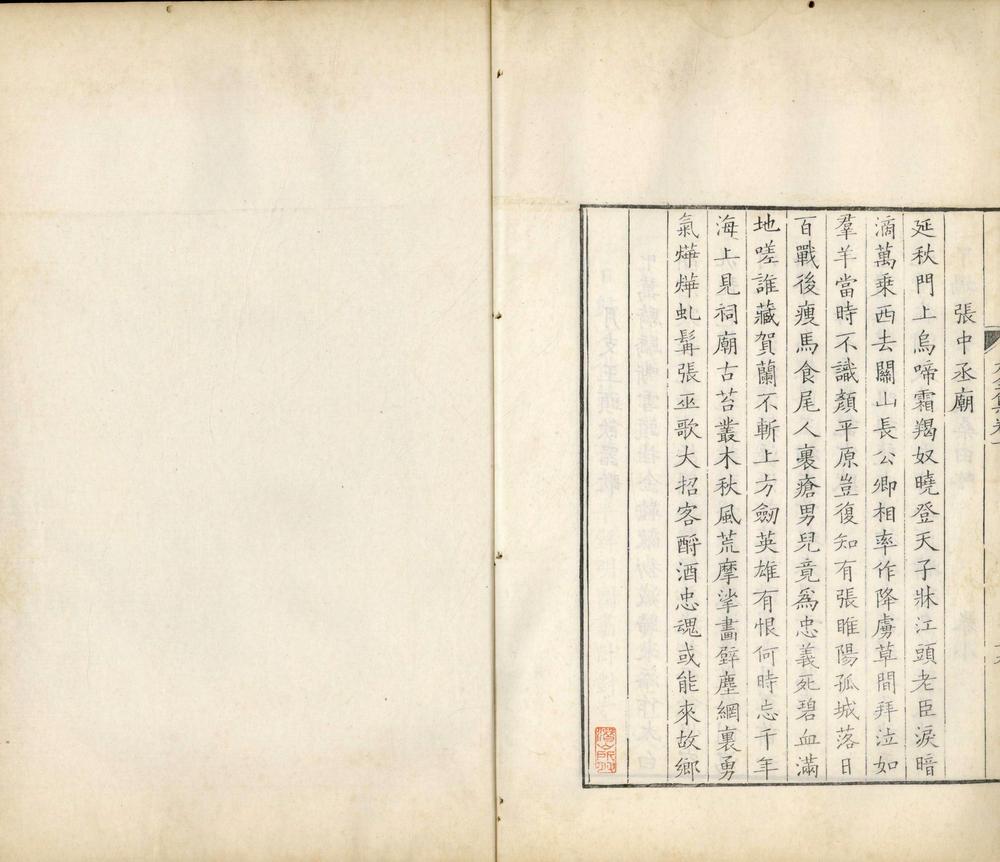 張中丞廟
延秋門上烏啼霜羯奴曉登天子牀江頭老臣淚暗
滴萬乘西去關山長公卿相率作降虜草間拜泣如
羣羊當時不識顏平原豈復知有張睢陽孤城落日
百戰後瘦馬食尾人裹瘡男兒竟爲忠義死碧血滿
地嗟誰藏賀蘭不斬上方劒英雄有恨何時忘千年
海上見祠廟古苔叢木秋風荒摩挲畵壁塵網裏勇
氣燁燁虬髯張巫歌大招客酹酒忠魂或能來故鄉